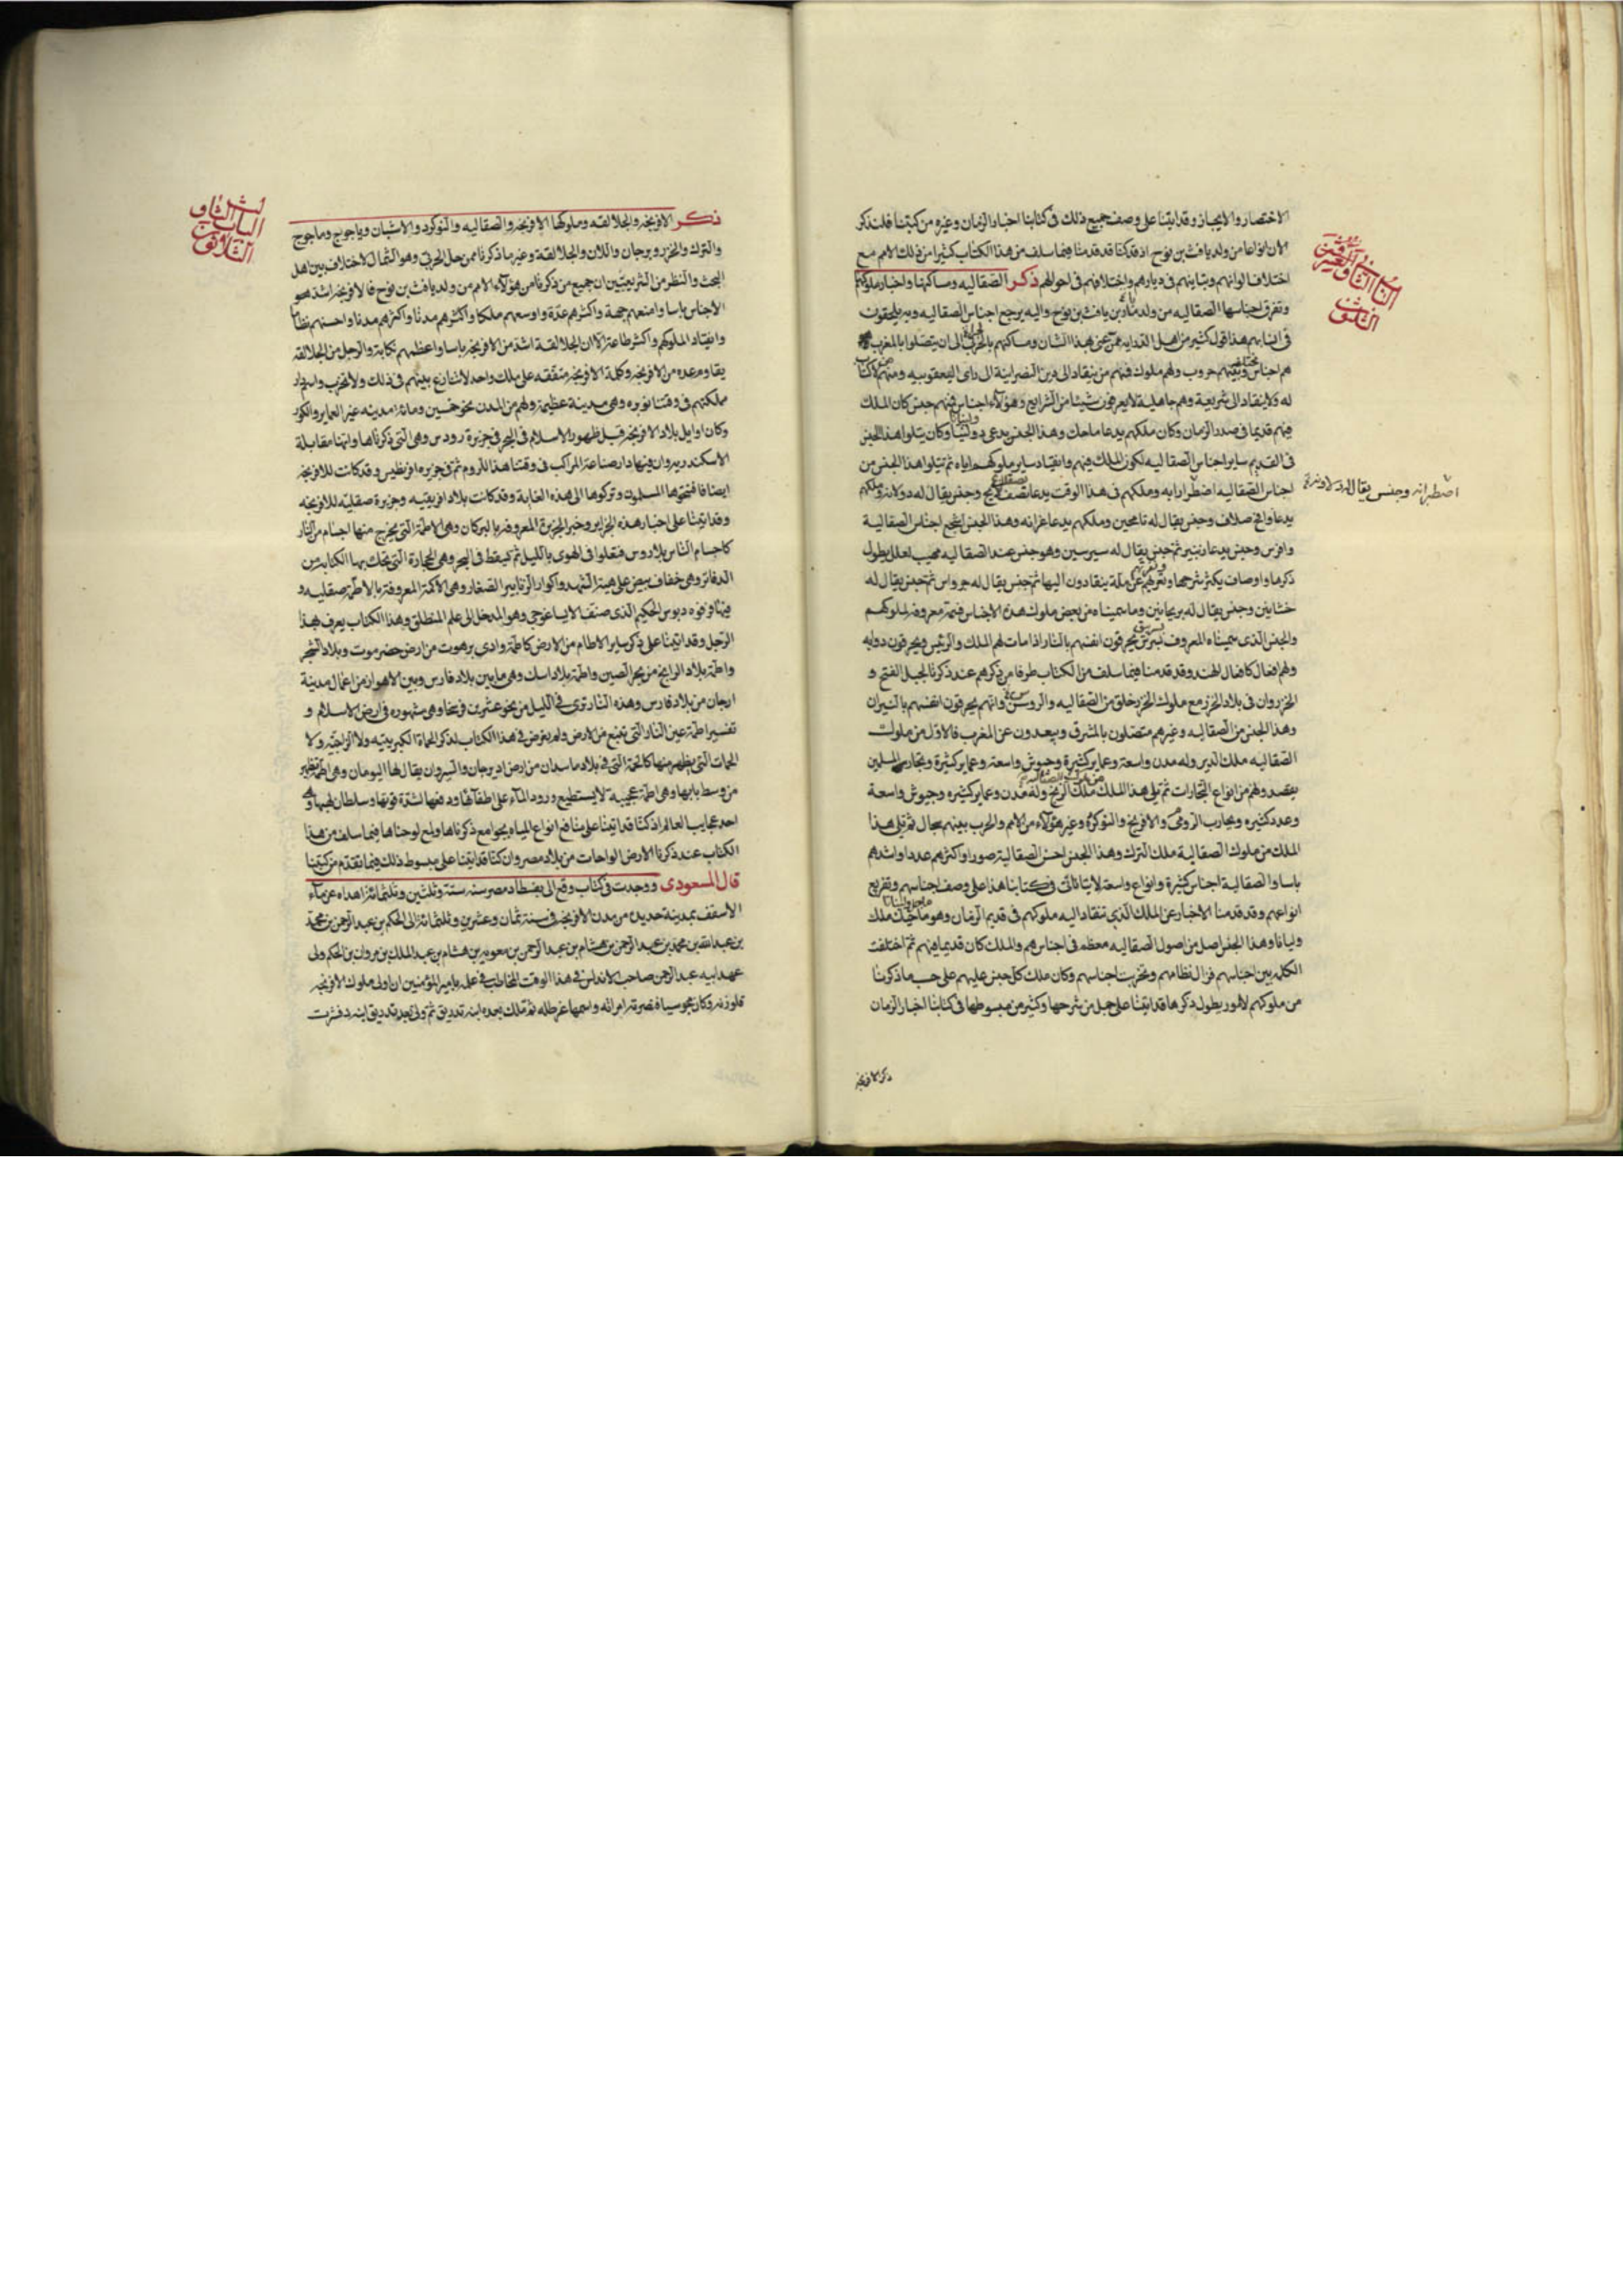 الاختصار والايجاز وقد اتينا على وصف جميع ذلك فى كتابنا اخبار الزمان وغيره من كتبنا فلنذكر
الان انواعا من ولد يافث بن نوح اذ قد كنا قد قدمنا فيما سلف من هذا الكتاب كثيرا من ذلك الامم مع
اختلاف الوانهم وتباينهم فى ديارهم واختلافهم فى احوالهم ذكر الصقالبه ومساكنها واخبار ملوكها
وتفرق اجناسها الصقالبه من ولد بن يافث بن نوح واليه يرجع اجناس الصقالبه وبه يلحقون
فى انسابهم هذا قول كثير من اهل الدرايه ممن عنى بهذا الشان ومساكنهم الى ان يتصلوا بالمغرب
هم اجناس مختلفه وبينهم حروب ولهم ملوك فمنهم من ينقاد الى دين النصرانية الى راى اليعقوبيه ومنهم من لا كتاب
له ولا ينقاد الى شريعة وهم جاهلية لا يعرفون شيئا من الشرايع وهؤلاء اجناس فمنهم جنس كان الملك
فيهم قديما فى صدر الزمان وكان ملكهم يدعا ماجك وهذا الجنس يدعى وكان يتلوا هذا الجنس
فى القديم ساير اجناس الصقالبه لكون الملك فيهم وانقياد ساير ملوكهم اياه ثم يتلوا هذا الجنس من
اجناس الصقالبه وملكهم فى هذا الوقت يدعا وجنس يقال له دولانه وملكهم
اصطبرانه وجنس يقال له دولاونه
يدعا وانج صلاف وجنس يقال له نامجين وملكهم يدعا غرانه وهذا الجنس اشجع اجناس الصقالبة
وافرس وجنس يدعا ثم جنس يقال له سيرسين وهو جنس عند الصقالبه مهيب لعلل يطول
ذكرها واوصاف يكثر شرحها وتعريهم عن ملة ينقادون اليها ثم جنس يقال له جرواس ثم جنس يقال له
خشابين وجنس يقال له برنجابين وما سميناه من بعض ملوك هذه الاجناس فسمة معروفه لملوكهم
والجنس الذى سميناه المعروف بسرتين يحرقون انفسهم بالنار اذا مات لهم الملك والرئيس ويحرقون دوابه
ولهم افعال كافعال الهند وقد قدمنا فيما سلف من الكتاب طرفا من ذكرهم عند ذكرنا لجبل الفتح و
الخزر وان فى بلاد الخزر مع ملوك الخزر خلق من الصقالبه والروس وانهم يحرقون انفسهم بالنيران
وهذا الجنس من الصقالبه وغيرهم متصلون بالمشرق ويبعدون عن المغرب فالاول من ملوك
الصقالبه ملك الدير وله مدن واسعة وعماير كثيرة وجيوش واسعة وعماير كثيرة وتجار المسلمين
يقصدونهم من انواع التجارات ثم يلى هذا الملك من ملوك الصقالبه ملك الافرنج وله مدن وعماير كثيره وجيوش واسعة
وعدد كثيره ويحارب الروم والافرنج والنوكرد وغير هؤلاء من الامم والحرب بينهم سجال ثم يلى هذا
الملك من ملوك الصقالبة ملك الترك وهذا الجنس احسن الصقالبة صورا واكثرهم عددا واشدهم
باسا والصقالبة اجناس كثيرة وانواع واسعة لا ياتى كتابنا هذا على وصف اجناسهم وتفريع
انواعهم وقد قدمنا الاخبار عن الملك الذى تنقاد اليه ملوكهم فى قديم الزمان وهو ماجك ملك
وليانا وهذا الجنس اصل من اصول الصقالبه معظم فى اجناسهم والملك كان قديما فيهم ثم اختلفت
الكلمه بين اجناسهم فزال نظامهم وتحزبت اجناسهم وكان ملك كل جنس عليهم على حسب ما ذكرنا
من ملوكهم لامور يطول ذكرها قد اتينا على جمل من شرحها وكثير من مبسوطها فى كتابنا اخبار الزمان
ذكر الافرنجه
الباب الثانى
والثلاثون
ذكر الافرنجه والجلالقه وملوكها الافرنجه والصقالبه والنوكرد والاشبان وياجوج وماجوج
والترك والخزر وبرجان واللان والجلالقة وغير ما ذكرنا ممن حل الجربى وهو الشمال لا اختلاف بين اهل
البحث والنظر من الشرعيين ان جميع من ذكرنا من هؤلاء الامم من ولد يافث بن نوح فالافرنجه اشد هؤلاء
الاجناس باسا وامنعهم جهة واكثرهم عدة واوسعهم ملكا واكثرهم مدنا واحسنهم نظاما
وانقيادا لملوكهم واكثر طاعة الا ان الجلالقة اشد من الافرنجه باسا واعظمهم نكاية والرجل من الجلالقه
يقاوم عده من الافرنجه وكلمة الافرنجه متفقه على ملك واحد لا تنازع بينهم فى ذلك ولا تحزب واسم دار
مملكتهم فى وقتنا بويره وهى مدينة عظيمة ولهم من المدن نحو خمسين ومائة مدينه غير العماير والكور
وكان اوايل بلاد الافرنجه قبل ظهور الاسلام فى البحر فى جزيرة رودس وهى التى ذكرناها وانها مقابلة
الاسكندريه وان فيها دار صناعة المراكب فى وقتنا هذا للروم ثم فى جزيره اقريطيس وقد كانت للافرنجه
ايضا فافتتحوها المسلمون وتركوها الى هذه الغاية وقد كانت بلاد افريقيه وجزيرة صقليه للافرنجه
وقد اتينا على اخبار هذه الجزاير وخبر الجزيرة المعروفه بالبركان وهى الاطمة التى يخرج منها اجسام من النار
كاجسام الناس بلا روس فتعلوا فى الهوى بالليل ثم تسقط فى البحر وهى الحجارة التى تحك بها الكتابة من
الدفاتر وهى خفاف بيض على هيئة الشهد واكوار الزنابير الصغار وهى الاكمة المعروفة بالاطمة صقليه و
فيها فرفوديوس الحكيم الذى صنف الايساغوجى وهو المدخل الى علم المنطق وهذا الكتاب يعرف بهذا
الرجل وقد اتينا على ذكر ساير الاطام من الارض كاطمة وادى برهوت من ارض حضرموت وبلاد الشحر
واطمة بلاد الزابج من بحر الصين واطمة بلاد اسك وهى ما بين بلاد فارس وبين الاهواز من اعمال مدينة
ارجان من بلاد فارس وهذه النار ترى فى الليل من نحو عشرين فرسخا وهى مشهوره فى ارض الاسلام و
تفسير اطمة عين النار التى تنبع من الارض ولم نعرض فى هذا الكتاب لذكر الحماة الكبريتيه ولا الزاجيه ولا
الحمات التى يظهر منها كالحمة التى فى بلاد ماسبدان من ارض اريوجان والسيروان يقال لها النومان وهى اطمة تظهر
من وسط مايها وهى اطمة عجيبة لا يستطيع ورود الماء على اطفائها ودفعها لشدة قوتها وسلطان لهبها وهى
احد عجايب العالم اذ كنا قد اتينا على منافع انواع المياه بجوامع ذكرناها ولمع لوحناها فيما سلف من هذا
الكتاب عند ذكرنا الارض الواحات من بلاد مصر وان كنا قد اتينا على مبسوط ذلك فيما تقدم من كتبنا
قال المسعودى ووجدت فى كتاب وقع الى بفسطاط مصر سنه ستة وثلثين وثلثمائة اهداه عرماء
الاسقف بمدينة من مدن الافرنجه فى سنة ثمان وعشرين وثلثمائة الى الحكم بن عبد الرحمن بن محمد
بن عبد الله بن محمد بن عبد الرحمن بن هشام بن عبد الرحمن بن معويه بن هشام بن عبد الملك بن مروان بن الحكم ولى
عهد ابيه عبد الرحمن صاحب الاندلس فى هذا الوقت المخاطب فى عمله بامير المؤمنين ان اول ملوك الافرنجه
قلوزنه وكان مجوسيا فنصرته امراته واسمها غرطله ثم ملك بعده ابنه لذريق ثم ولى بعد لذريق ابنه دقشرت